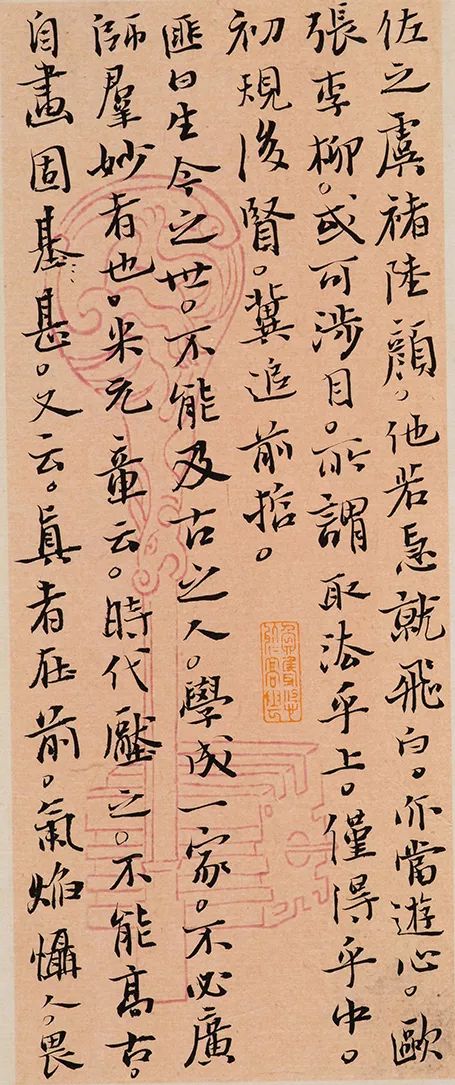 佐之虞褚陸顏。他若急就飛白。亦當遊心。歐
張李柳。或可涉目。所謂取法乎上。僅得乎中。
初規後賢。冀追前哲。
匪曰生今之世。不能及古之人。學成一家。不必廣
師羣妙者也。米元章云。時代壓之。不能高古。
自畫固基甚。又云。眞者在前。氣焰懾人。畏